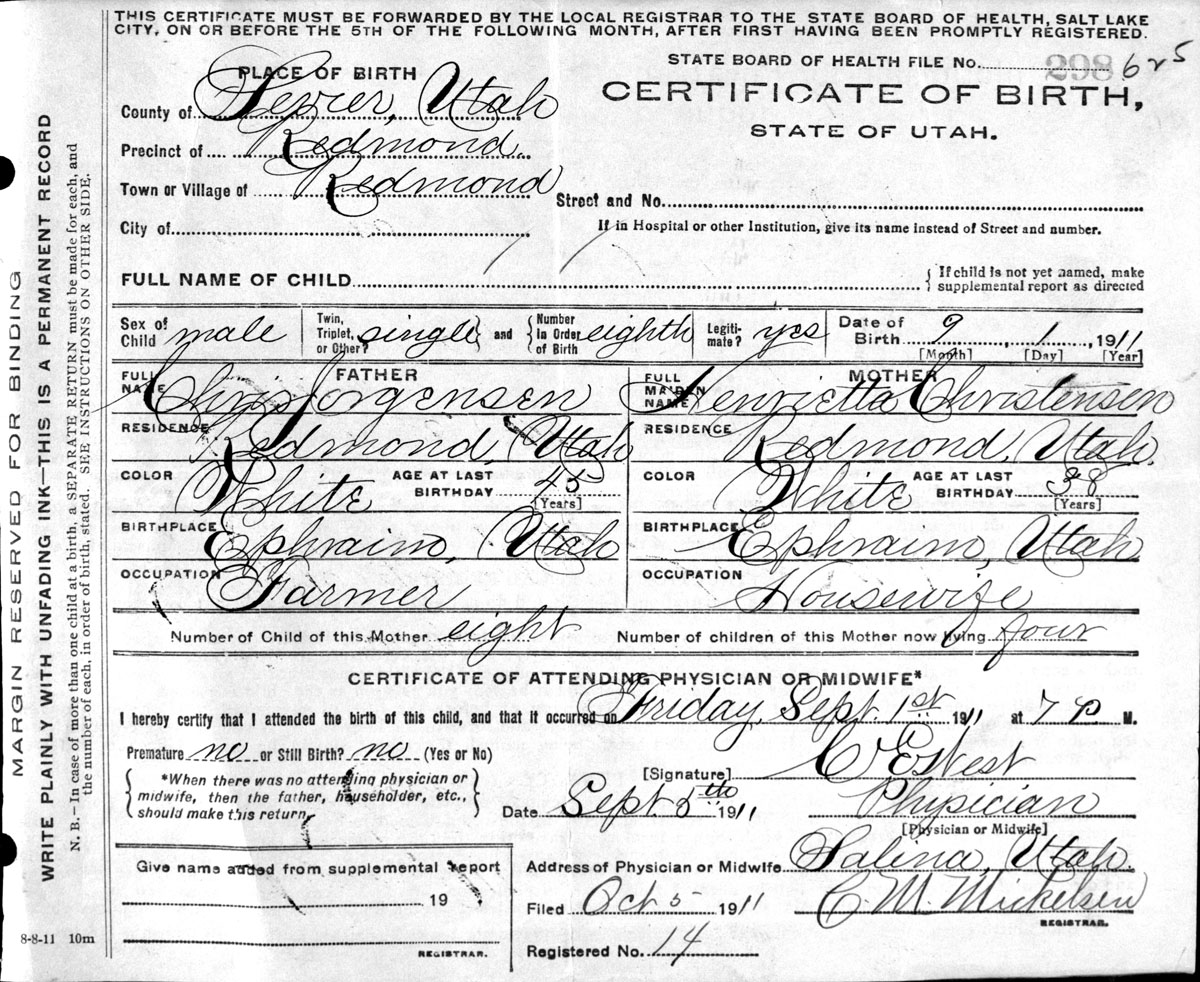 THIS CERTIFICATE MUST BE FORWARDED BY THE LOCAL REGISTRAR TO THE STATE BOARD OF HEALTH, SALT LAKE
CITY, ON OR BEFORE THE 5TH OF THE FOLLOWING MONTH, AFTER FIRST HAVING BEEN PROMPTLY REGISTERED.
STATE BOARD OF HEALTH FILE No. 298 625
PLACE OF BIRTH
CERTIFICATE OF BIRTH,
STATE OF UTAH.
County of Sevier, Utah
Precinct of Redmond
Town or Village of Redmond
Street and No.
City of
If in Hospital or other Institution, give its name instead of Street and number.
FULL NAME OF CHILD
{ If child is not yet named, make
supplemental report as directed
Sex of Child male
Twin, Triplet, or Other? single } and { Number in Order of Birth eighth
Legitimate? yes
Date of Birth 9, 1, 1911
[Month] [Day] [Year]
FATHER
MOTHER
FULL NAME Chris Jorgensen
FULL MAIDEN NAME Henrietta Christensen
RESIDENCE Redmond, Utah
RESIDENCE Redmond, Utah.
COLOR White AGE AT LAST BIRTHDAY 45 [Years]
COLOR White AGE AT LAST BIRTHDAY 38 [Years]
BIRTHPLACE Ephraim, Utah
BIRTHPLACE Ephraim, Utah
OCCUPATION Farmer
OCCUPATION Housewife
Number of Child of this Mother eight Number of children of this Mother now living four
CERTIFICATE OF ATTENDING PHYSICIAN OR MIDWIFE*
I hereby certify that I attended the birth of this child, and that it occurred on Friday, Sept. 1st 1911 at 7 P M.
Premature no or Still Birth? no (Yes or No)
[Signature] C E West
{ *When there was no attending physician or
midwife, then the father, householder, etc.,
should make this return. }
Date Sept. 5th 1911
Physician
[Physician or Midwife]
Give name added from supplemental report
19
REGISTRAR.
Address of Physician or Midwife Salina, Utah.
Filed Oct 5 1911 C. M. Mickelsen
REGISTRAR.
Registered No. 14
8-8-11 10m
MARGIN RESERVED FOR BINDING
WRITE PLAINLY WITH UNFADING INK—THIS IS A PERMANENT RECORD
N. B.—In case of more than one child at a birth, a SEPARATE RETURN must be made for each, and
the number of each, in order of birth, stated. SEE INSTRUCTIONS ON OTHER SIDE.